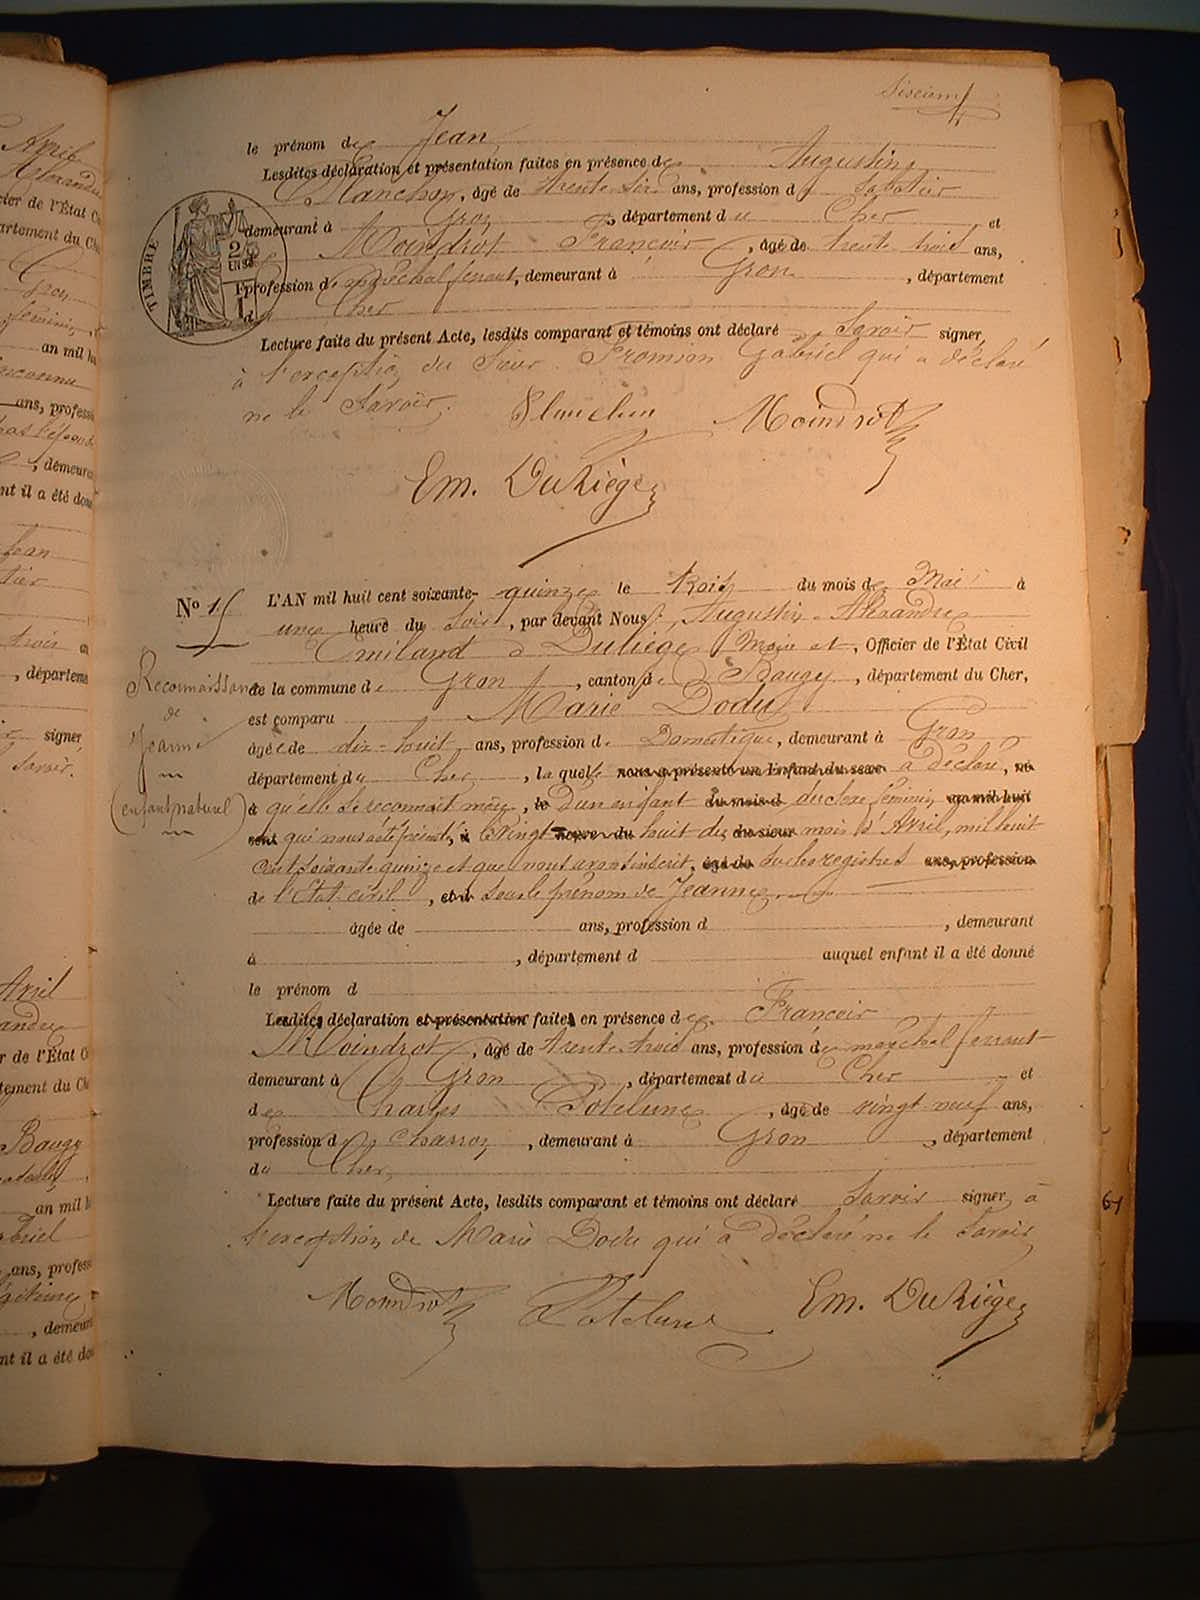 le prénom de Jean
Lesdites déclaration et présentation faites en présence de Augustin
Planchon, âgé de trente six ans, profession de Sabotier
demeurant à Gron, département du Cher et
Moindrot François, âgé de trente trois ans,
profession de maréchal ferrant, demeurant à Gron, département
du Cher
Lecture faite du présent Acte, lesdits comparant et témoins ont déclaré Savoir signer,
à l'exception du Sieur Gabriel qui a déclaré
ne le Savoir.
Planchon Moindrot
Em. Duliège
TIMBRE
No 15
L'AN mil huit cent soixante-quinze le trois du mois de Mai à
une heure du Soir, par devant Nous Augustin Alexandre
Emiland Duliège Maire et, Officier de l'État Civil
de la commune de Gron, canton de Baugy, département du Cher,
est comparu Marie Dodu
âgée de dix-huit ans, profession de Domestique, demeurant à Gron
département du Cher, laquelle nous a présenté un Enfant du sexe a déclaré, né
à qu'elle se reconnait mère, le d'un enfant du mois d du sexe féminin an mil huit
cent qui nous a été présenté, à Vingt heures du huit du sieur mois d'Avril, mil huit
Cent soixante quinze et que nous avons inscrit, âgé de sur les registres ans, profession
de l'Etat civil, et d sous le prénom de Jeanne
âgée de ans, profession d , demeurant
à , département d auquel enfant il a été donné
le prénom d
Lesdites déclaration et présentation faites en présence de François
Moindrot, âgé de trente trois ans, profession de maréchal ferrant
demeurant à Gron, département du Cher et
de Charles Potelune, âgé de vingt neuf ans,
profession de Charron, demeurant à Gron, département
du Cher
Lecture faite du présent Acte, lesdits comparant et témoins ont déclaré Savoir signer, à
l'exception de Marie Dodu qui a déclaré ne le Savoir
Moindrot Potelune Em. Duliège
Reconnaissance
de
Jeanne
(enfant naturel)